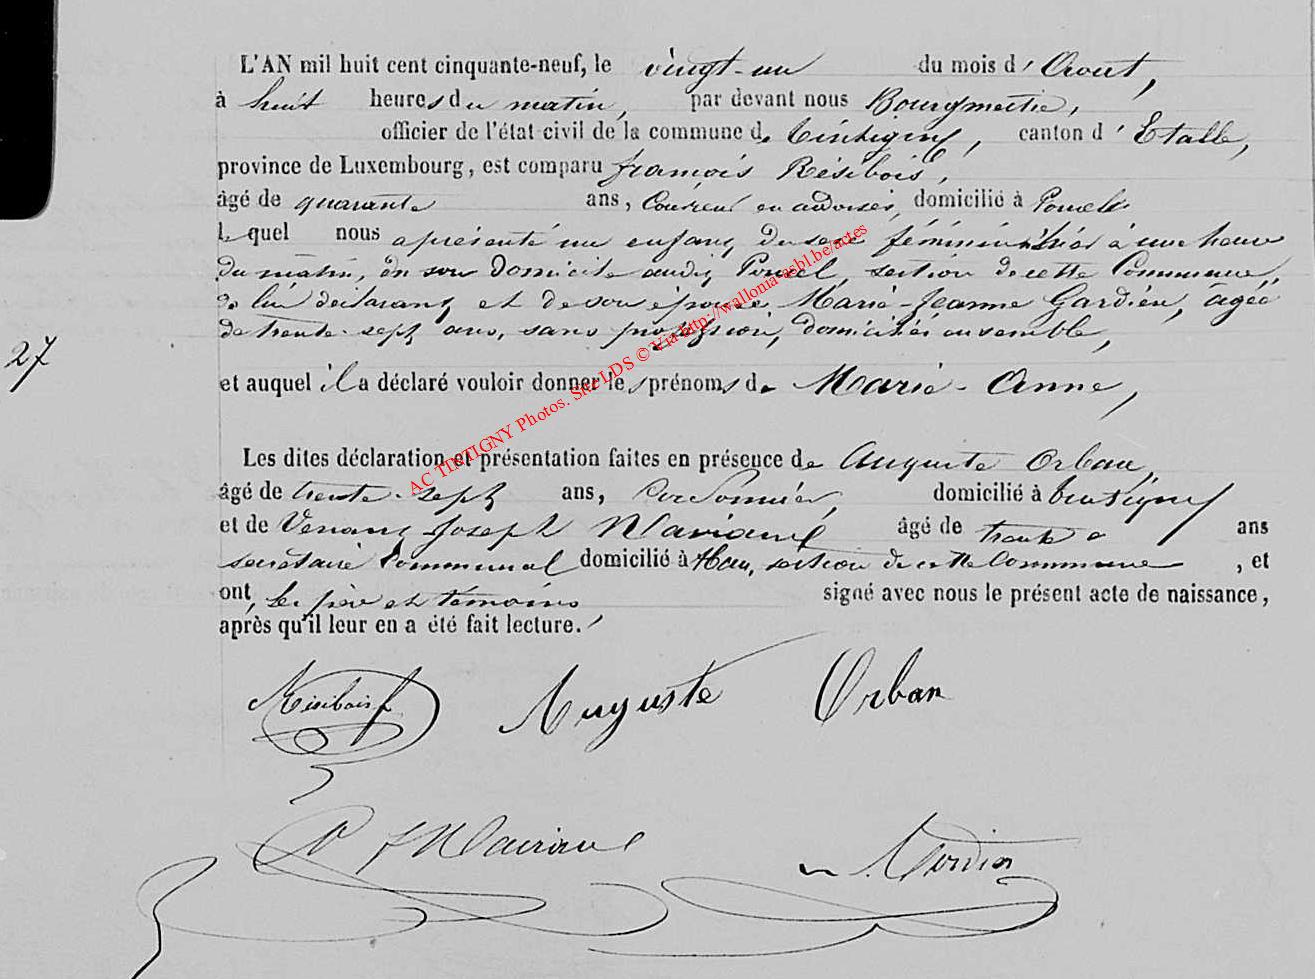 L'AN mil huit cent cinquante-neuf, le vingt-un du mois d' Aout,
à huit heures du matin, par devant nous Bourgmestre,
officier de l'état civil de la commune de Tintigny, canton d' Etalle,
province de Luxembourg, est comparu françois Résibois,
âgé de quarante ans, Couvreur en ardoises, domicilié à Poncelle
lequel nous a présenté un enfant du sexe féminin né à une heure
du matin, en son domicile audit Poncel, section de cette Commune,
de lui déclarant et de son épouse Marie-Jeanne Gardien, âgée
de trente-sept ans, sans profession, domiciliés ensemble,
27
et auquel il a déclaré vouloir donner les prénoms de Marie-Anne,
Les dites déclaration et présentation faites en présence de Auguste Orban,
âgé de trente-sept ans, Cordonnier, domicilié à Tintigny
et de Venant Joseph âgé de trente ans
secrétaire Communal domicilié à Han, section de cette Commune, et
ont, le père et témoins signé avec nous le présent acte de naissance,
après qu'il leur en a été fait lecture.
Résibois f Auguste Orban
AC TINTIGNY Photos. Site LDS © Via http://wallonia-asbl.be/actes